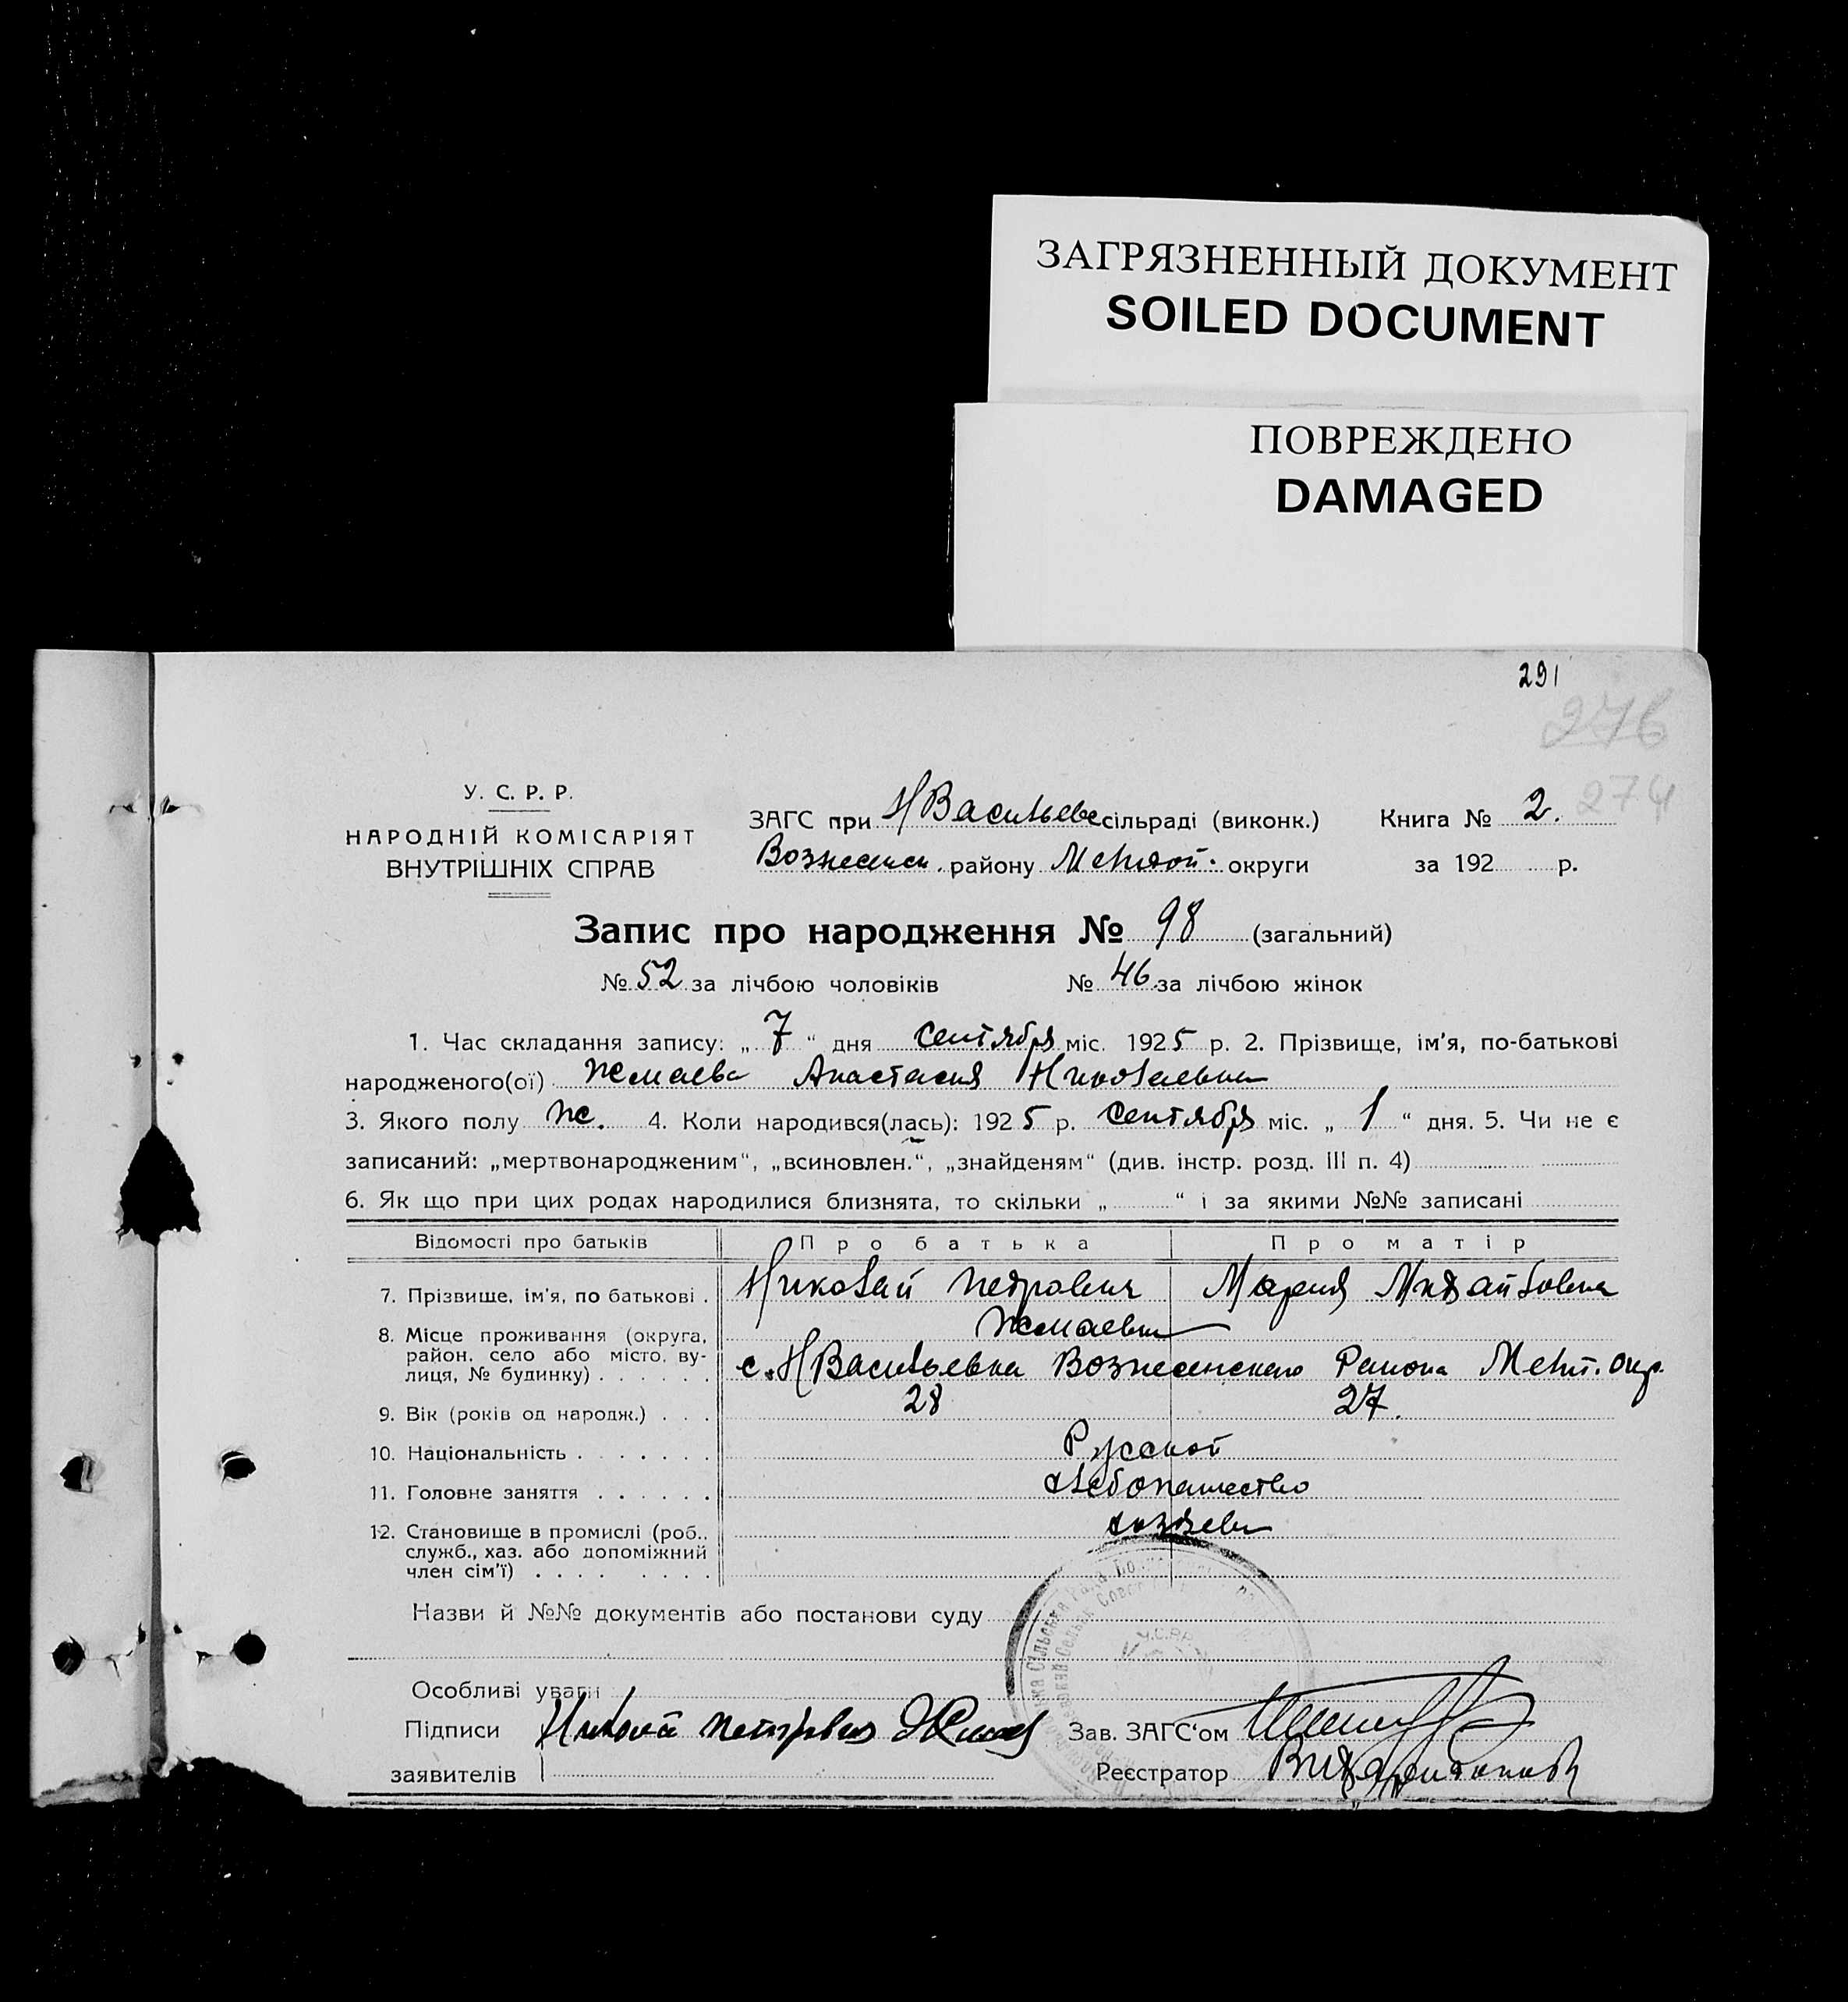 ЗАГРЯЗНЕННЫЙ ДОКУМЕНТ
SOILED DOCUMENT
ПОВРЕЖДЕНО
DAMAGED
291
276
274
У. С. Р. Р.
НАРОДНІЙ КОМІСАРІЯТ
ВНУТРІШНІХ СПРАВ
ЗАГС при НВасильевс сільраді (виконк.) Книга № 2.
Вознесенск. району Мелитоп. округи за 192 р.
Запис про народження № 98 (загальний)
№ 52 за лічбою чоловіків № 46 за лічбою жінок
1. Час складання запису: „7“ дня сентября міс. 1925 р. 2. Прізвище, ім'я, по-батькові
народженого(ої) Жмаева Анастасия Николаевна
3. Якого полу ж. 4. Коли народився(лась): 1925 р. сентября міс. „1“ дня. 5. Чи не є
записаний: „мертвонародженим“, „всиновлен.“, „знайденям“ (див. інстр. розд. III п. 4)
6. Як що при цих родах народилися близнята, то скільки „ “ і за якими №№ записані
Відомості про батьків Про батька Про матір
7. Прізвище, ім'я, по батькові . Николай Петрович Мария Михайловна
Жмаевы
8. Місце проживання (округа,
район, село або місто, ву-
лиця, № будинку) . . . . . . с. НВасильевка Вознесенского Района Мелит. окр.
9. Вік (років од народж.) . . . 28 27.
10. Національність . . . . . . . Русской
11. Головне заняття . . . . . . хлебопашество
12. Становище в промислі (роб.,
служб., хаз. або допоміжний
член сім'ї) . . . . . . . . хозяева
Назви й №№ документів або постанови суду
У.С.Р.Р.
Особливі уваги
Підписи Николай Петрович Жмаев Зав. ЗАГС'ом
заявителів Реєстратор